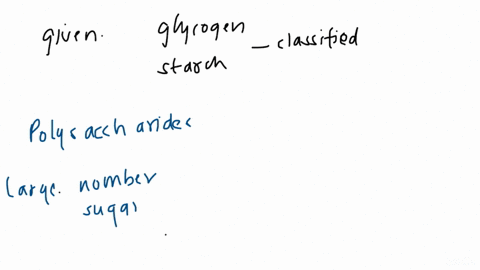 given. glycogen
starch – classified
Polysaccharides
large. nomber
sugar